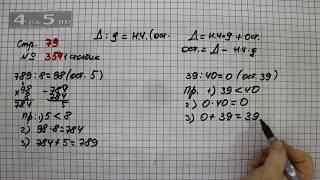 4 a 5.RU
Стр. 79
№ 354 1 столбик
Δ : g = н.ч. (ост.
Δ = н.ч. · g + ост.
ост. = Δ - н.ч. · g
789 : 8 = 98 (ост. 5)
× 98 - 789
8 784
784 5
Пр: 1) 5 < 8
2) 98 · 8 = 784
3) 784 + 5 = 789
39 : 40 = 0 (ост. 39)
Пр. 1) 39 < 40
2) 0 · 40 = 0
3) 0 + 39 = 39